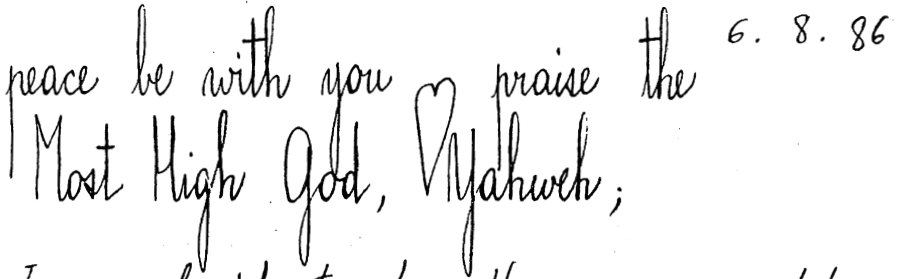 peace be with you ♡ praise the 6. 8. 86
Most High God, Yahweh;